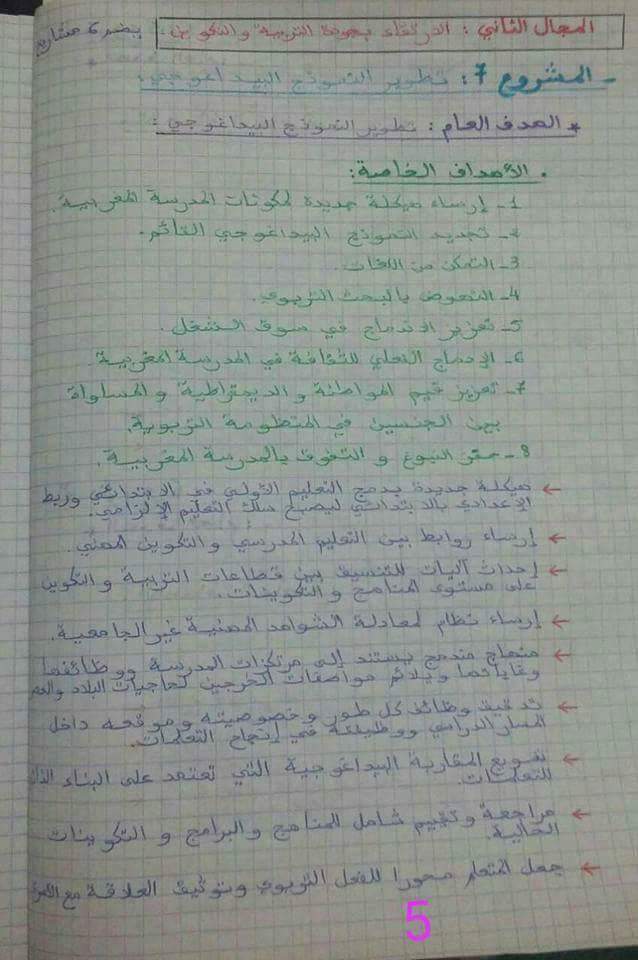 المجال الثاني : الارتقاء بجودة التربية والتكوين. يضم 6 مشاريع
- المشروع 7 : تطوير النموذج البيداغوجي.
* الهدف العام : تطوير النموذج البيداغوجي :
. الأهداف الخاصة :
1- إرساء هيكلة جديدة لمكونات المدرسة المغربية.
2- تجديد النموذج البيداغوجي القائم.
3- التمكن من اللغات.
4- النهوض بالبحث التربوي.
5- تعزيز الاندماج في سوق الشغل.
6- الإدماج الفعلي للثقافة في المدرسة المغربية.
7- تعزيز قيم المواطنة والديمقراطية والمساواة
بين الجنسين في المنظومة التربوية.
8- حفز النبوغ و التفوق بالمدرسة المغربية.
← هيكلة جديدة بدمج التعليم الأولي في الابتدائي وربط
الإعدادي بالابتدائي ليصبح سلك التعليم الإلزامي.
← إرساء روابط بين التعليم المدرسي والتكوين المهني.
← إحداث آليات للتنسيق بين قطاعات التربية و التكوين
على مستوى المناهج و التكوينات.
← إرساء نظام لمعادلة الشواهد المهنية غير الجامعية.
← منهاج مندمج يستند إلى مرتكزات المدرسة ووظائفها
وغاياتها ويلائم مواصفات الخرجين لحاجيات البلاد
← تدقيق وظائف كل طور وخصوصيته وموقعه داخل
المسار الدراسي ووظيفته في إنجاح التعلمات.
← تنويع المقاربة البيداغوجية التي تعتمد على البناء
للتعلمات.
← مراجعة وتقييم شامل للمناهج والبرامج و التكوينات
الحالية.
← جعل المتعلم محورا للفعل التربوي وتوثيق العلاقة مع
5